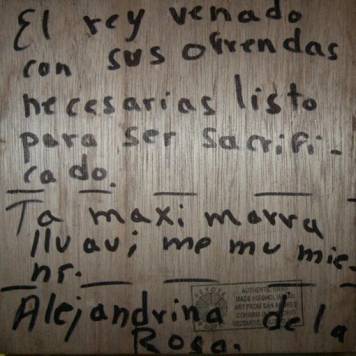 El rey venado
con sus ofrendas
necesarias listo
para ser sacrifi-
cado.
Ta maxi marra
llu aui me mu mie-
nr.
Alejandrina de la
Rosa.
AUTHENTIC